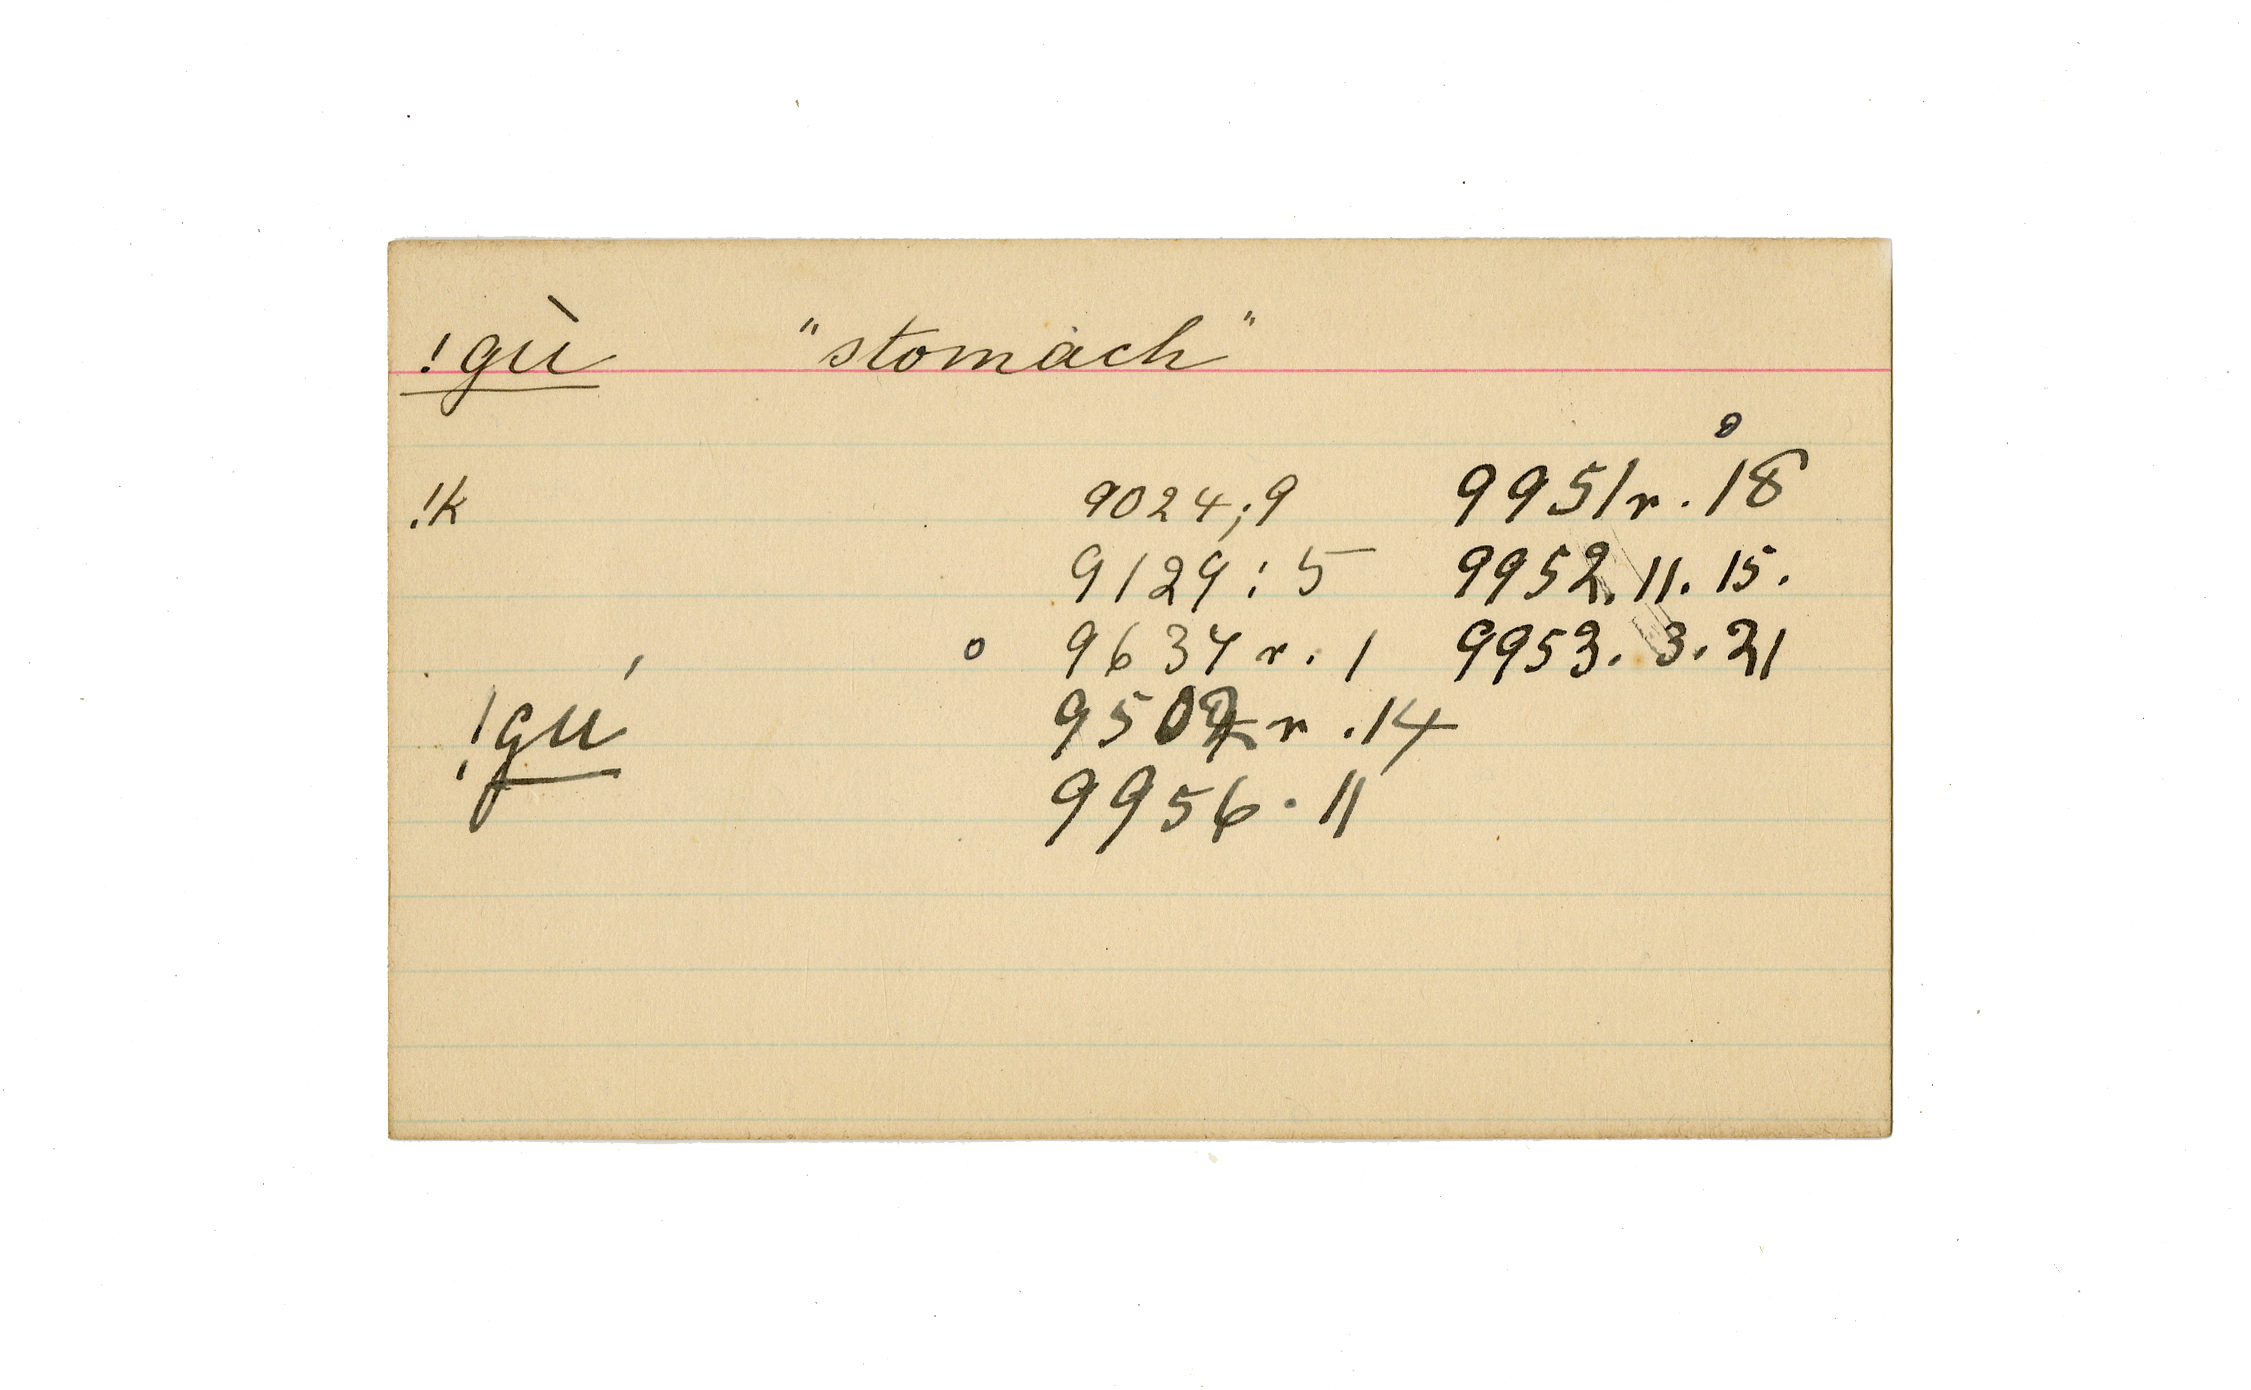 !gù "stomach"
!k 9024;9 9951r.18
9129:5 9952.11.15.
o 9637r.1 9953.3.21
!gú r.14
9956.11